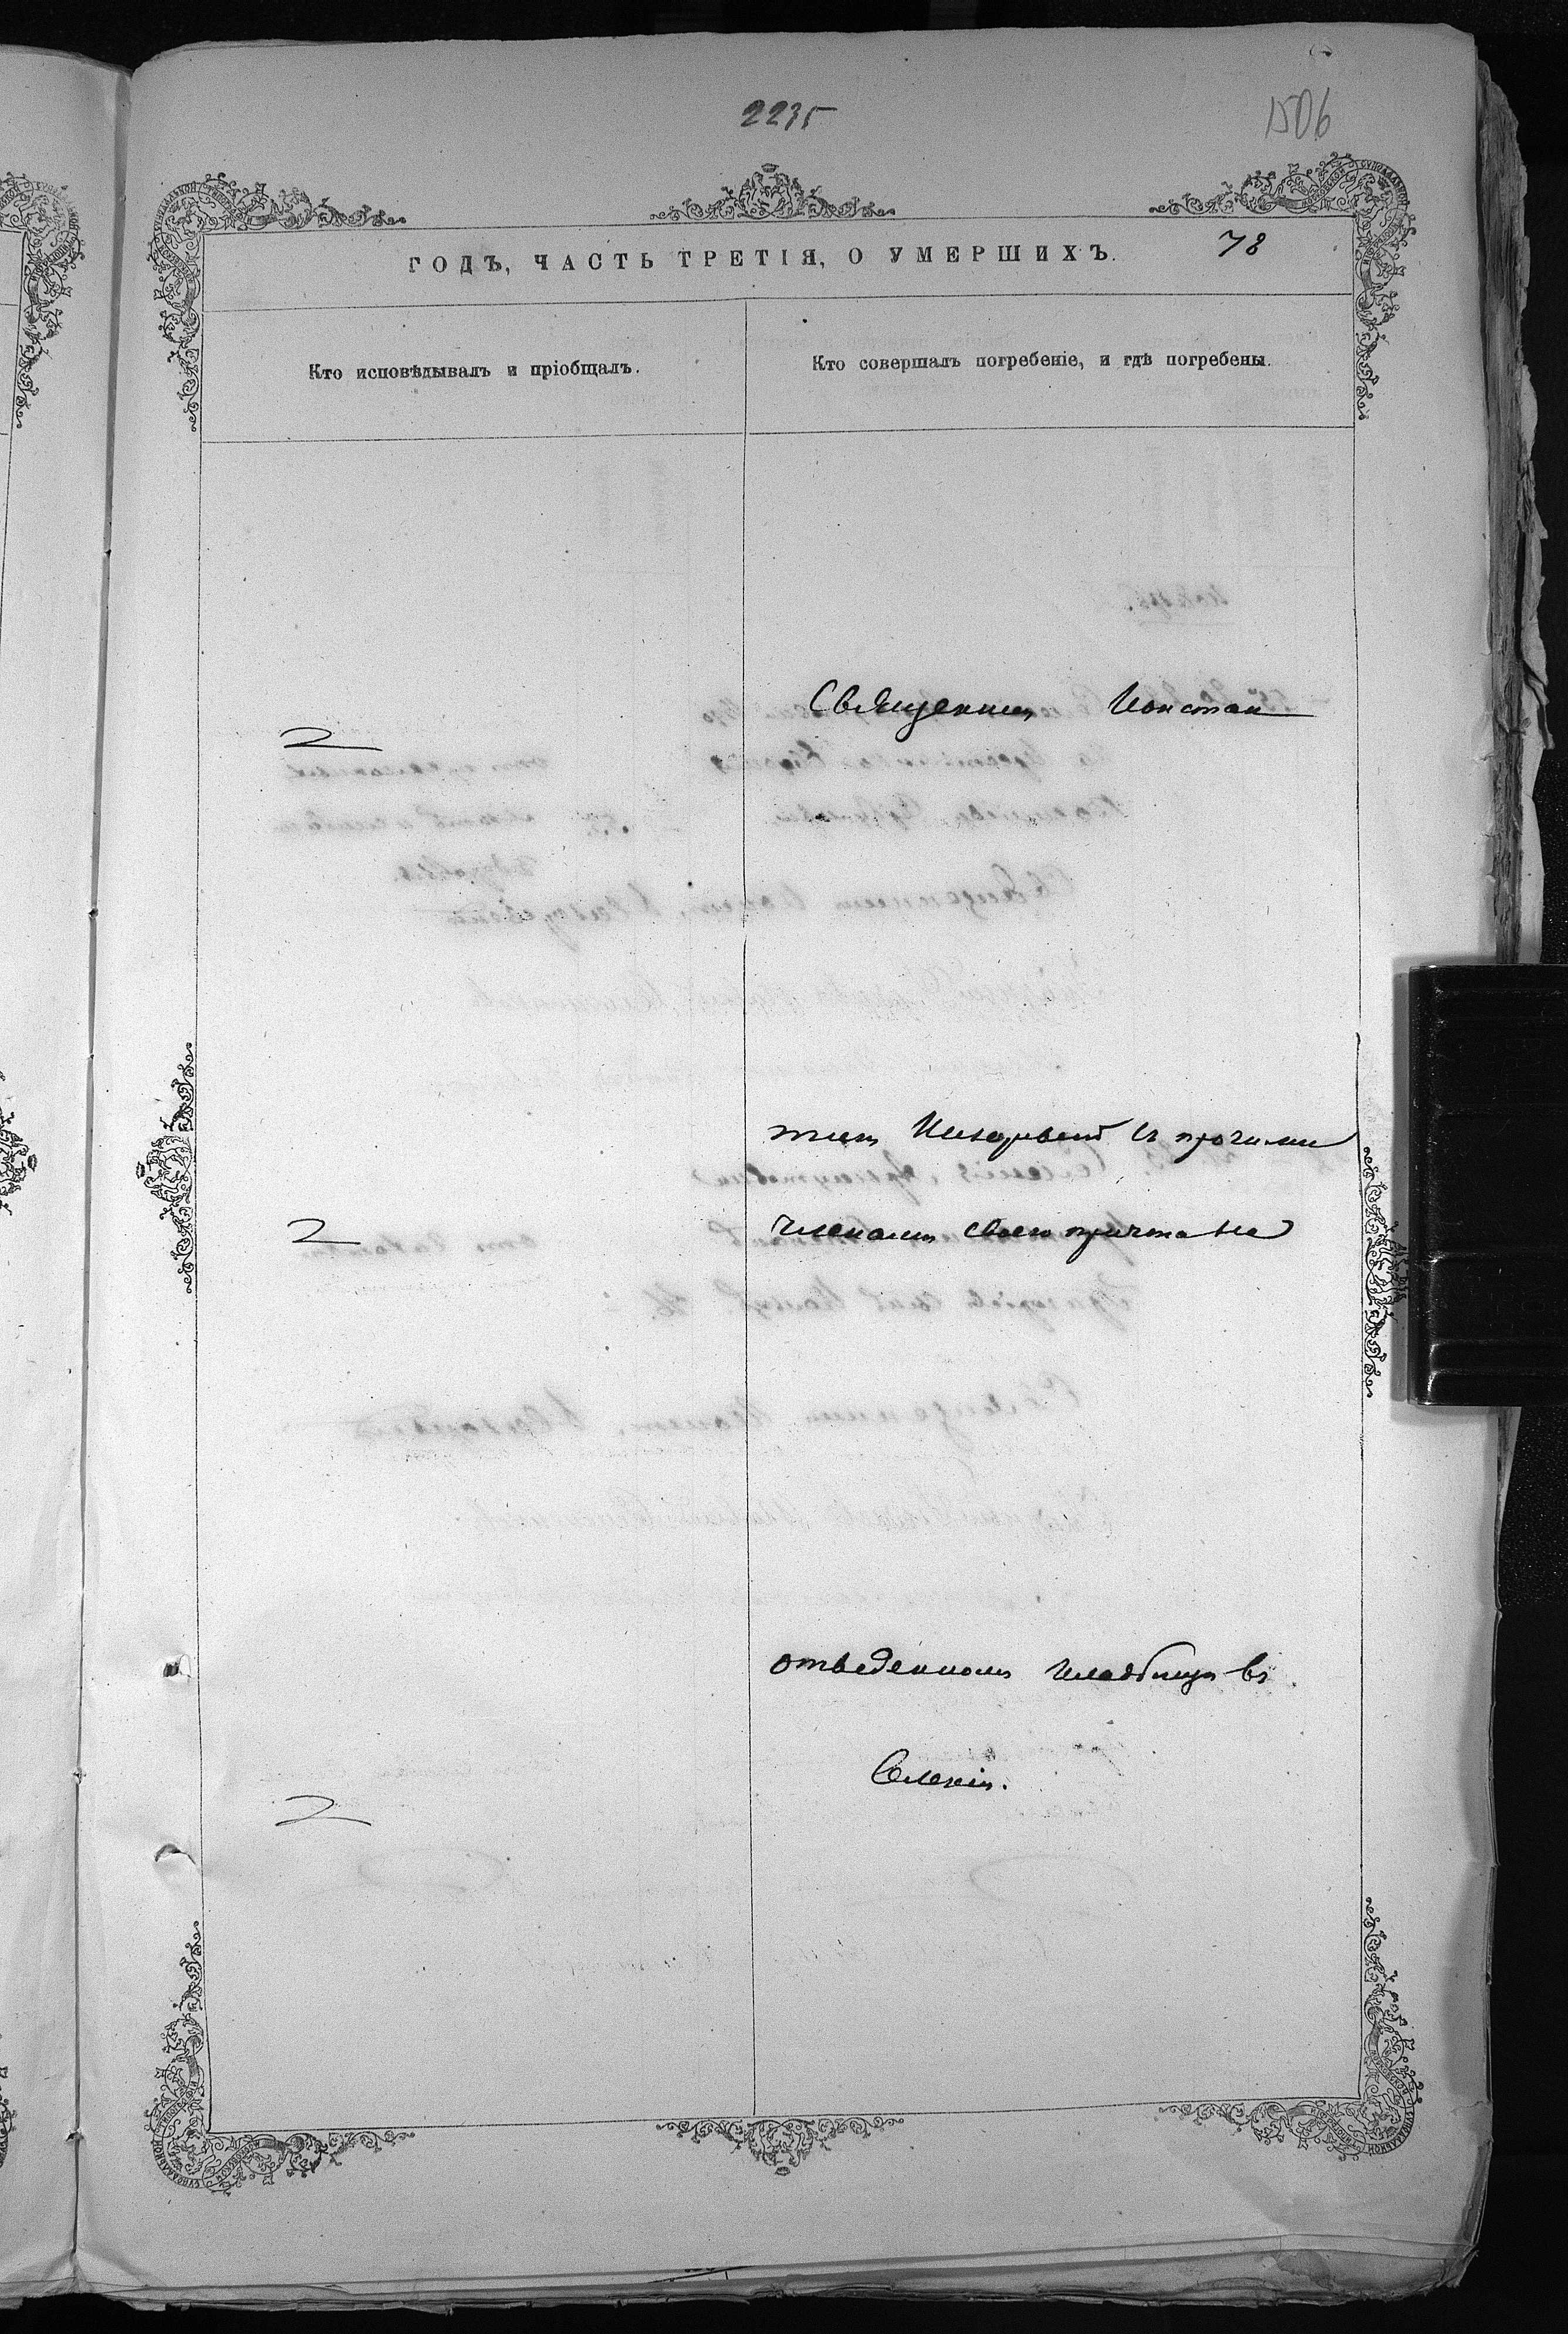 2235
1506
ГОДЪ, ЧАСТЬ ТРЕТІЯ, О УМЕРШИХЪ.
78
Кто исповѣдывалъ и пріобщалъ.
Кто совершалъ погребеніе, и гдѣ погребены.
Священникъ Констан
2
с прочими
2
членами своего причта на
отведенномъ кладбищѣ въ
Селеніи.
2